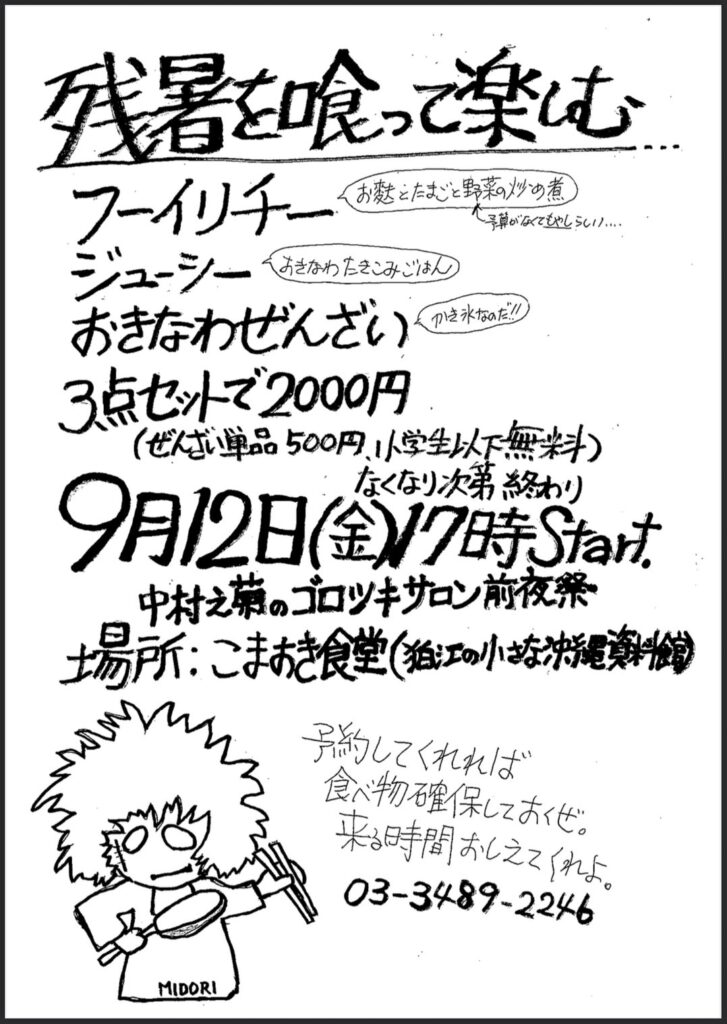 残暑を喰って楽しむ…
フーイリチー
お麩とたまごと野菜の炒め煮
予算がなくてもやしらしい….
ジューシー
おきなわ たきこみごはん
おきなわぜんざい
かき氷なのだ!!
3点セットで2000円
(ぜんざい単品500円、小学生以下無料)
なくなり次第終わり
9月12日(金)17時Start.
中村之菊のゴロツキサロン前夜祭
場所:こまおき食堂(狛江の小さな沖縄資料館)
予約してくれれば
食べ物確保しておくぜ。
来る時間おしえてくれよ。
03-3489-2246
MIDORI